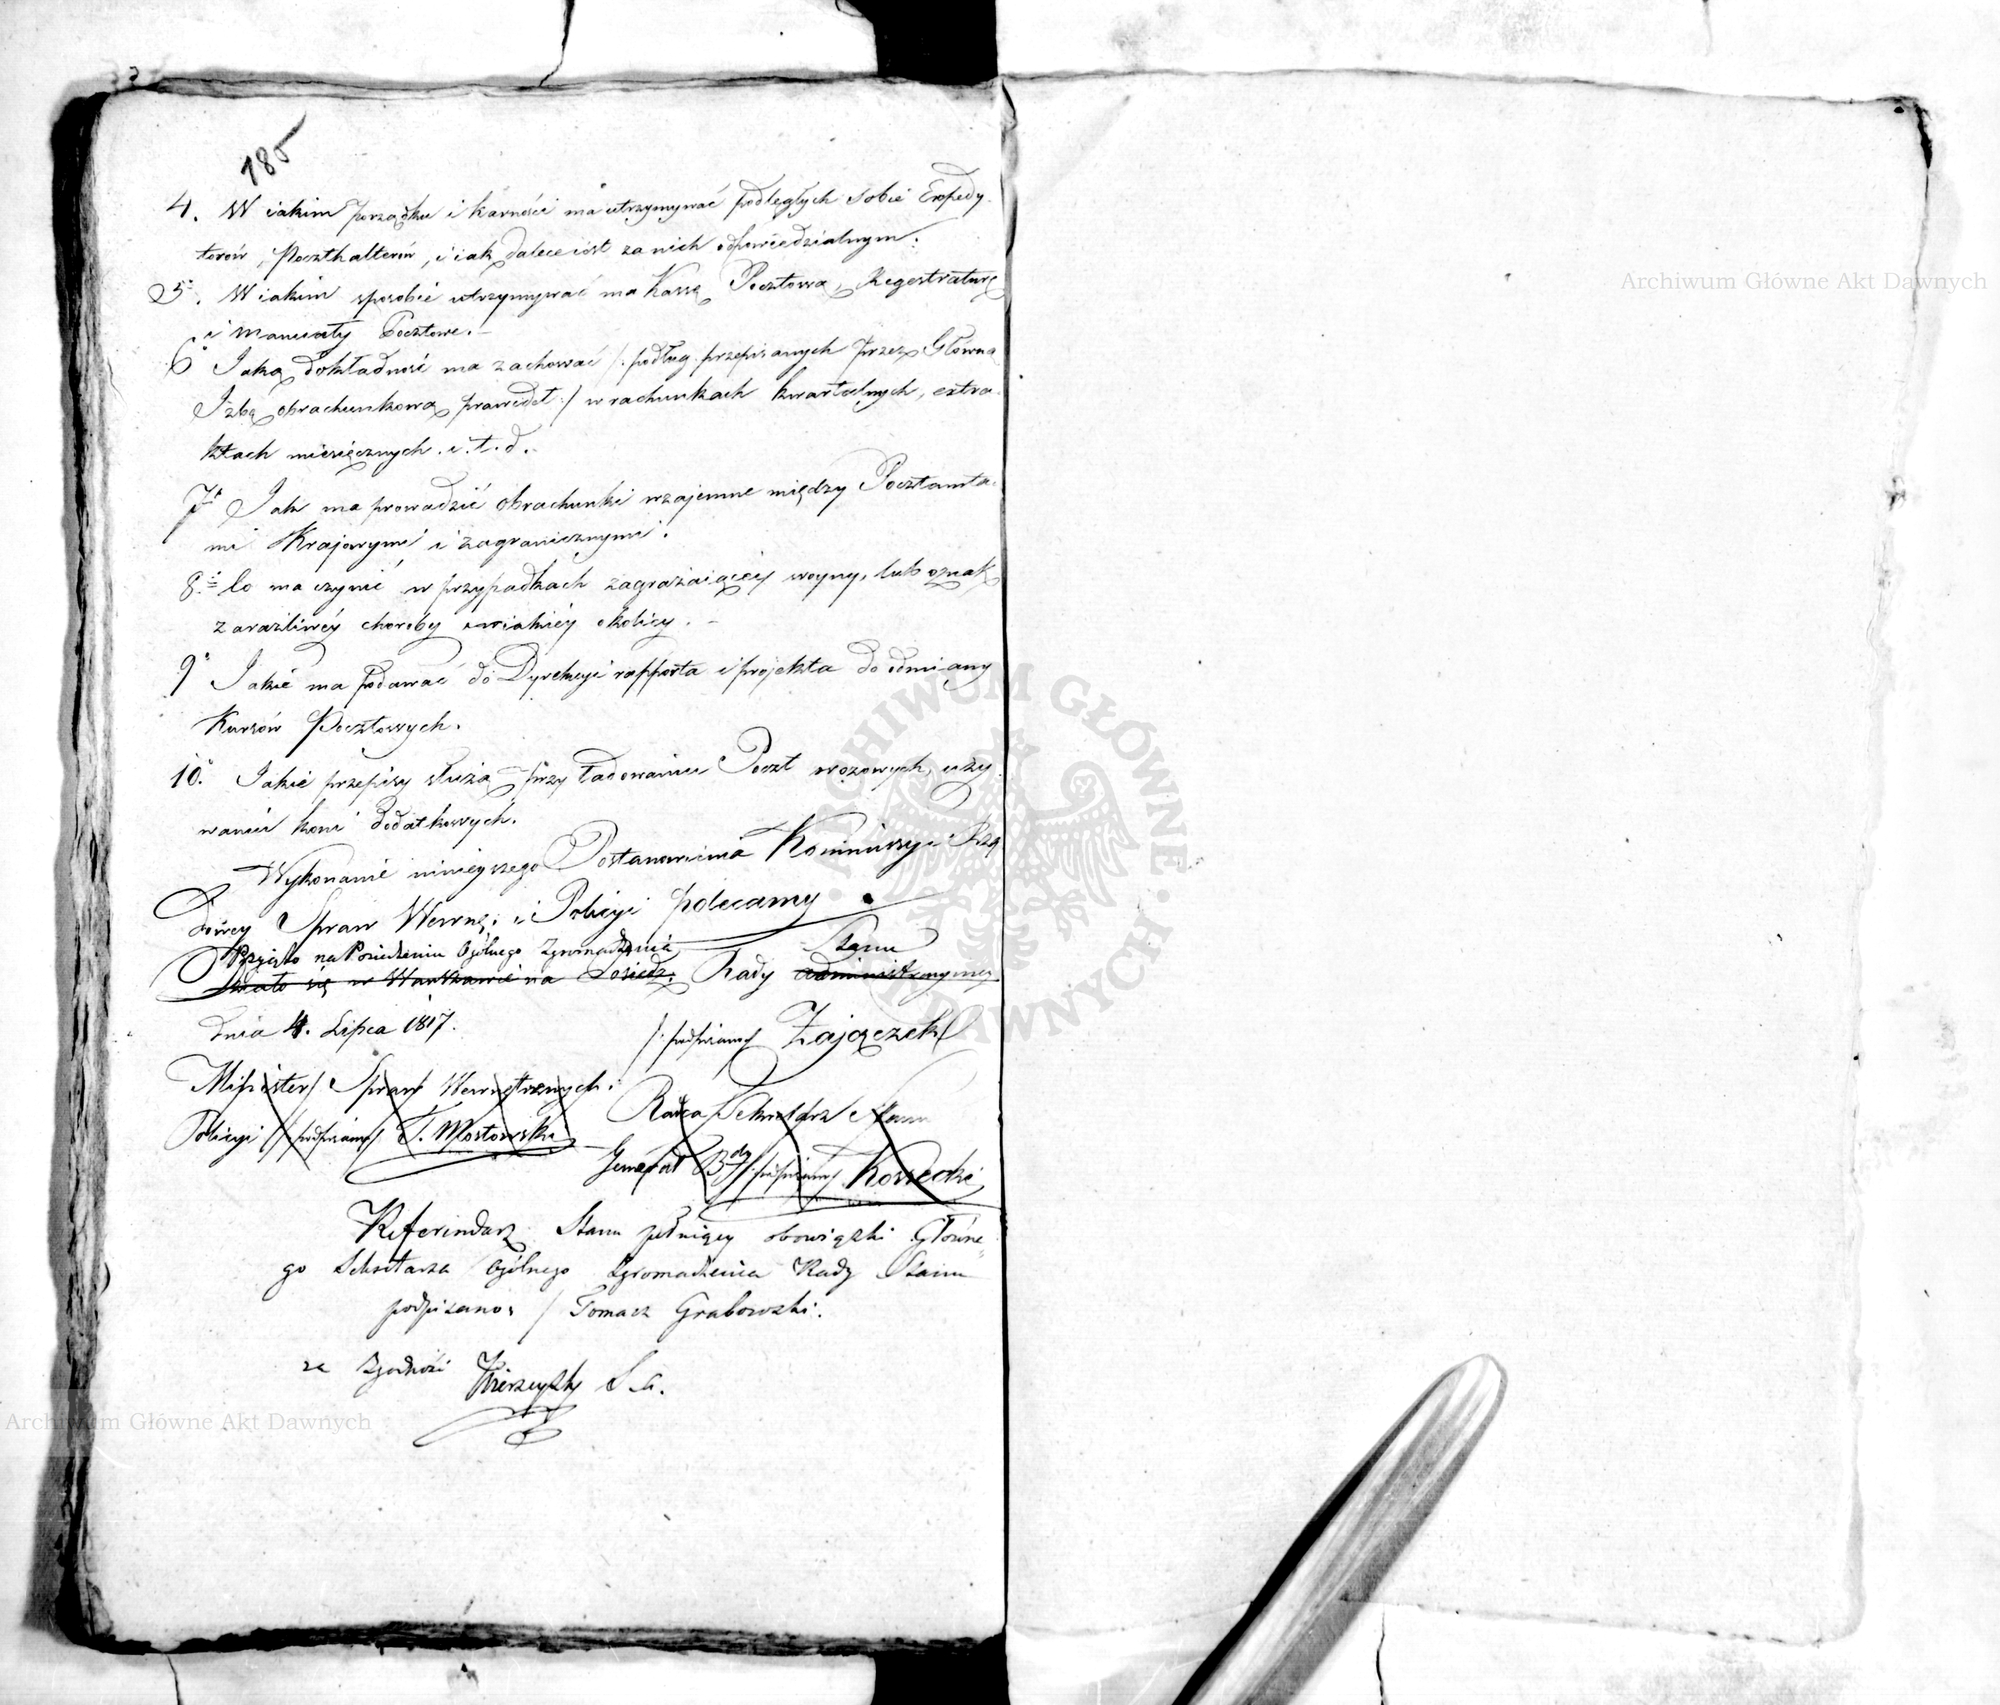 185
4. W iakim porządku i karności ma utrzymywać podległych sobie Expedy-
torów, Poczthalterów, i iak dalece iest za nich odpowiedzialnym.
5. W iakim sposobie utrzymywać ma Kassę Pocztową, Regestraturę
i manuały Pocztowe.
6 Jaką dokładność ma zachować /: podług przepisanych przez Główną
Izbę obrachunkową prawideł :/ w rachunkach kwartalnych, extra-
ktach miesięcznych i. t. d.
7. Jak ma prowadzić obrachunki wzajemne między Pocztamta-
mi Krajowymi i zagranicznymi.
8. Co ma czynić w przypadkach zagrażaiącey woyny, lub oznak
zaraźliwéy choroby w iakiéy okolicy.
9 Jakie ma podawać do Dyrekcyi rapporta i projekta do odmiany
Kursów Pocztowych.
10. Jakie przepisy służą przy ładowaniu Poczt wozowych, uży-
waniu koni dodatkowych.
Wykonanie ninieyszego Postanowienia Kommissyi Rzą-
dowey Spraw Wewnę: i Policyi polecamy.
Przyięto na Posiedzeniu Ogólnego Zgromadzenia Stanu
Działo się w Warszawie na Posiedz: Rady administracyiney
dnia 4. Lipca 1817.
/: podpisany Zajączek
Minister Spraw Wewnętrznych i
Policyi /: podpisany T. Mostowski
Radca Sekretarz Stanu
Generał Bdy /: podpisany Kossecki
Referendarz Stanu pełniący obowiązki Główne-
go Sekretarza Ogólnego Zgromadzenia Rady Stanu
podpisano: / Tomasz Grabowski.
za Zgodność
Archiwum Główne Akt Dawnych
Archiwum Główne Akt Dawnych
ARCHIWUM GŁÓWNE AKT DAWNYCH